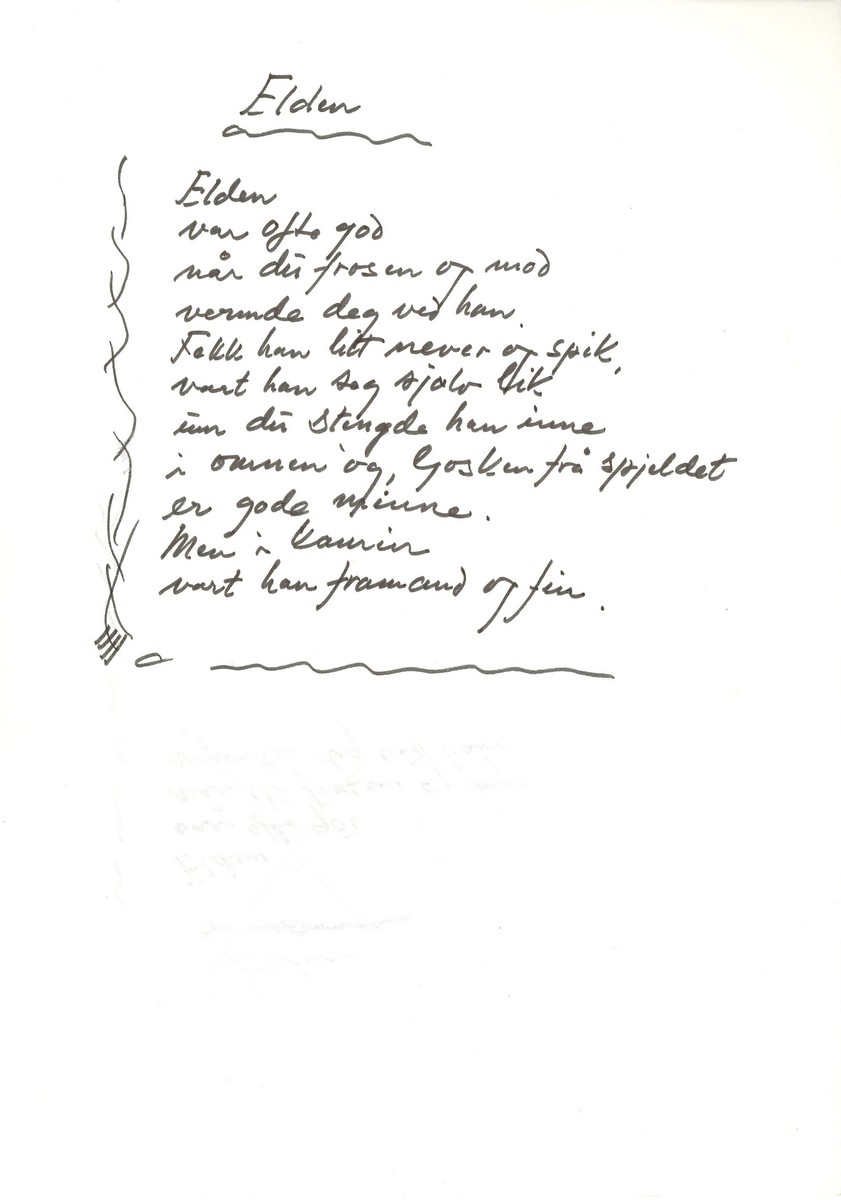 Elden
Elden
var ofte god
når du frosen og mod
vermde deg ved han.
Fekk han litt never og spik,
vart han seg sjølv lik
um du stengde han inne
i oumnen og, Gosken frå spjeldet
er gode minne.
Men i kamin
vart han framand og fin.